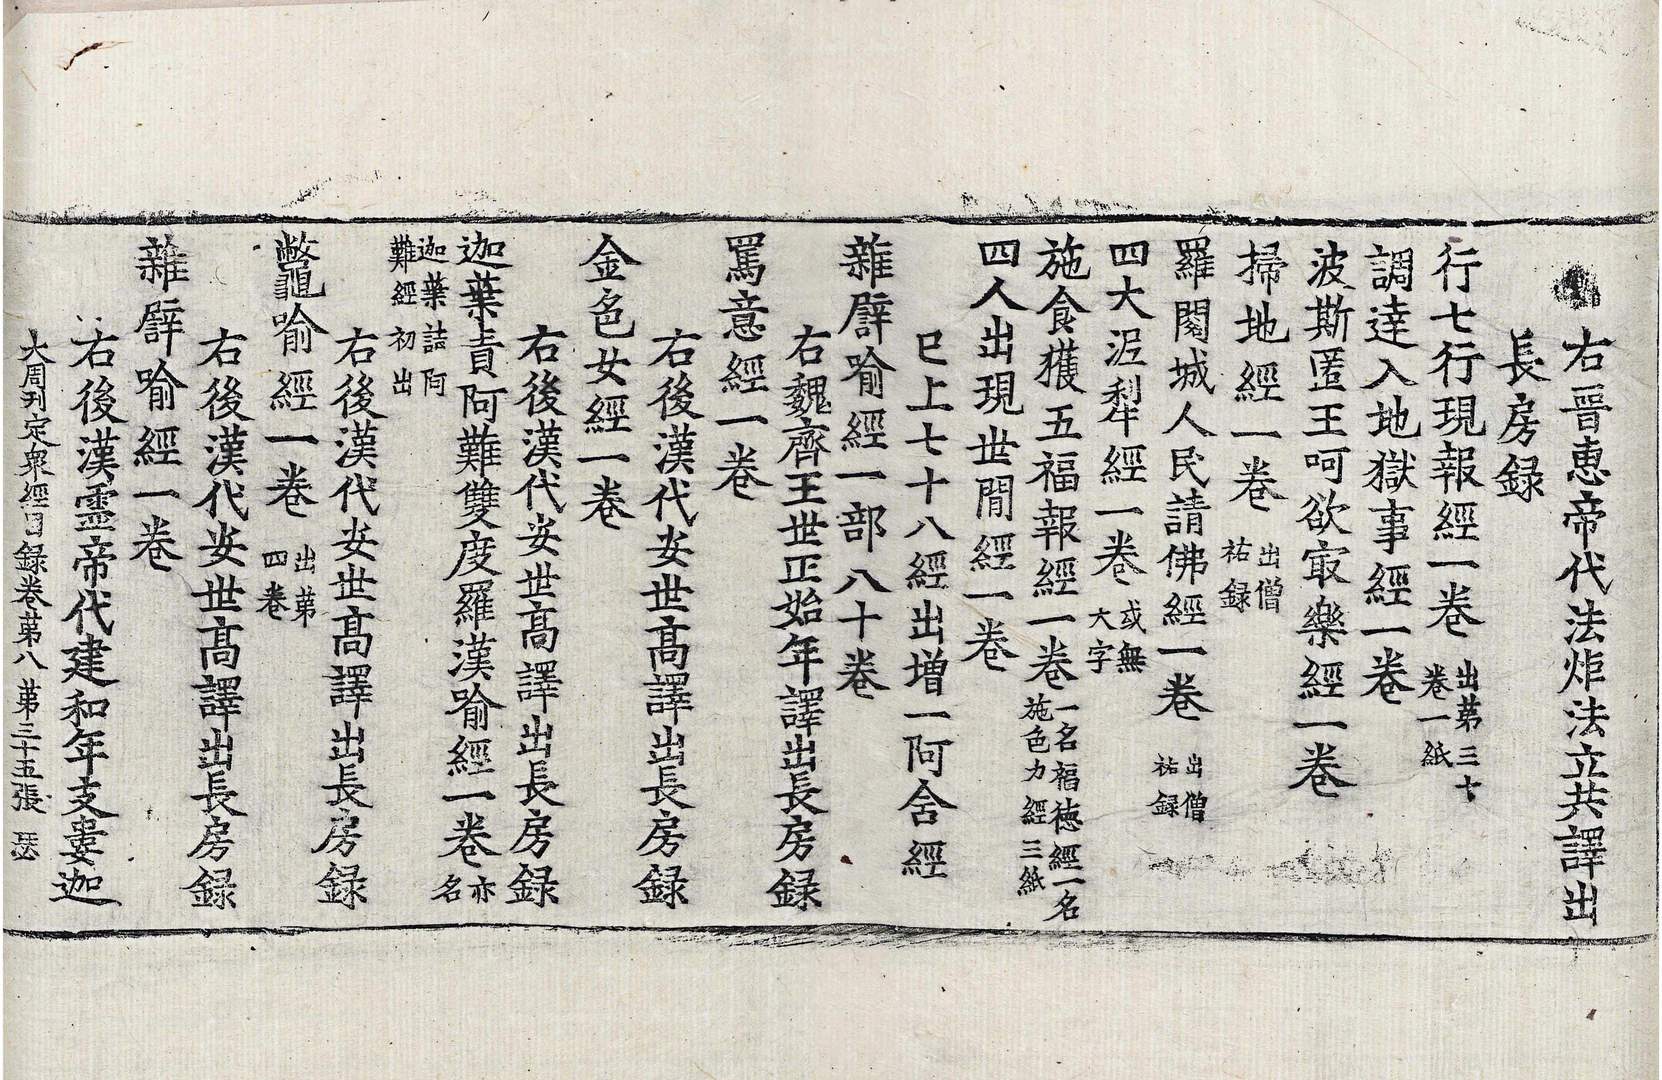 右晉惠帝代法炬法立共譯出
長房録
行七行現報經一卷 出苐三十卷一紙
調達入地獄事經一卷
波斯匿王呵欲㝡樂經一卷
掃地經一卷 出僧祐録
羅閱城人民請佛經一卷 出僧祐録
四大泥犁經一卷 或無大字
施食獲五福報經一卷 一名福德經一名施色力經三紙
四人出現世閒經一卷
已上七十八經出增一阿含經
雜譬喻經一部八十卷
右魏齊王世正始年譯出長房録
罵意經一卷
右後漢代安世高譯出長房録
金色女經一卷
右後漢代安世高譯出長房録
迦葉責阿難雙度羅漢喻經一卷 亦名
迦葉詰阿難經初出
右後漢代安世高譯出長房録
鼈喻經一卷 出苐四卷
右後漢代安世高譯出長房録
雜譬喻經一卷
右後漢靈帝代建和年支婁迦
大周刊定衆經目録卷苐八 苐三十五張